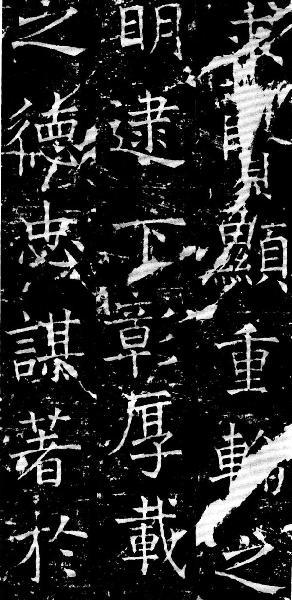 求賢顯重輪之
明逮下彰厚載
之德忠謀著於